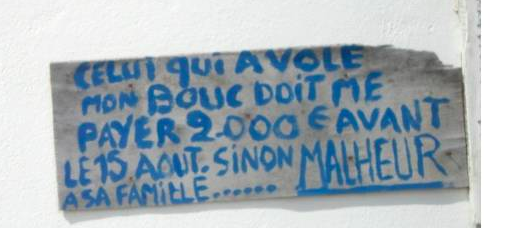 CELUI QUI A VOLE
MON BOUC DOIT ME
PAYER 2.000 € AVANT
LE 15 AOUT. SINON MALHEUR
A SA FAMILLE......